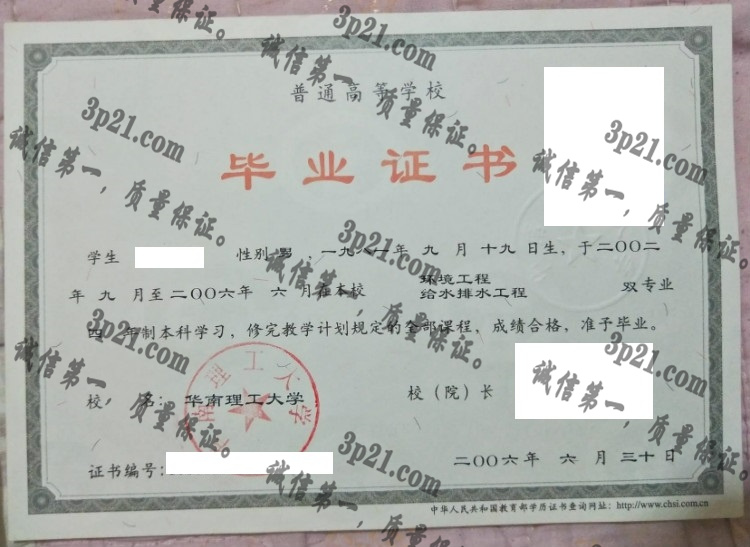 普通高等学校
毕业证书
学生 性别 男 ，一九八一年 九 月 十九 日生，于二〇〇二
年 九 月至二〇〇六年 六 月在本校 环境工程 双专业
给水排水工程
四 年制本科学习，修完教学计划规定的全部课程，成绩合格，准予毕业。
校 名：华南理工大学
校（院）长
证书编号：
二〇〇六年 六 月 三十日
中华人民共和国教育部学历证书查询网址：http://www.chsi.com.cn
华南理工大学
3p21.com
诚信第一，质量保证。
3p21.com
诚信第一，质量保证。
3p21.com
诚信第一，质量保证。
3p21.com
诚信第一，质量保证。
3p21.com
诚信第一，质量保证。
3p21.com
诚信第一，质量保证。
3p21.com
诚信第一，质量保证。
3p21.com
诚信第一，质量保证。
质量保证。